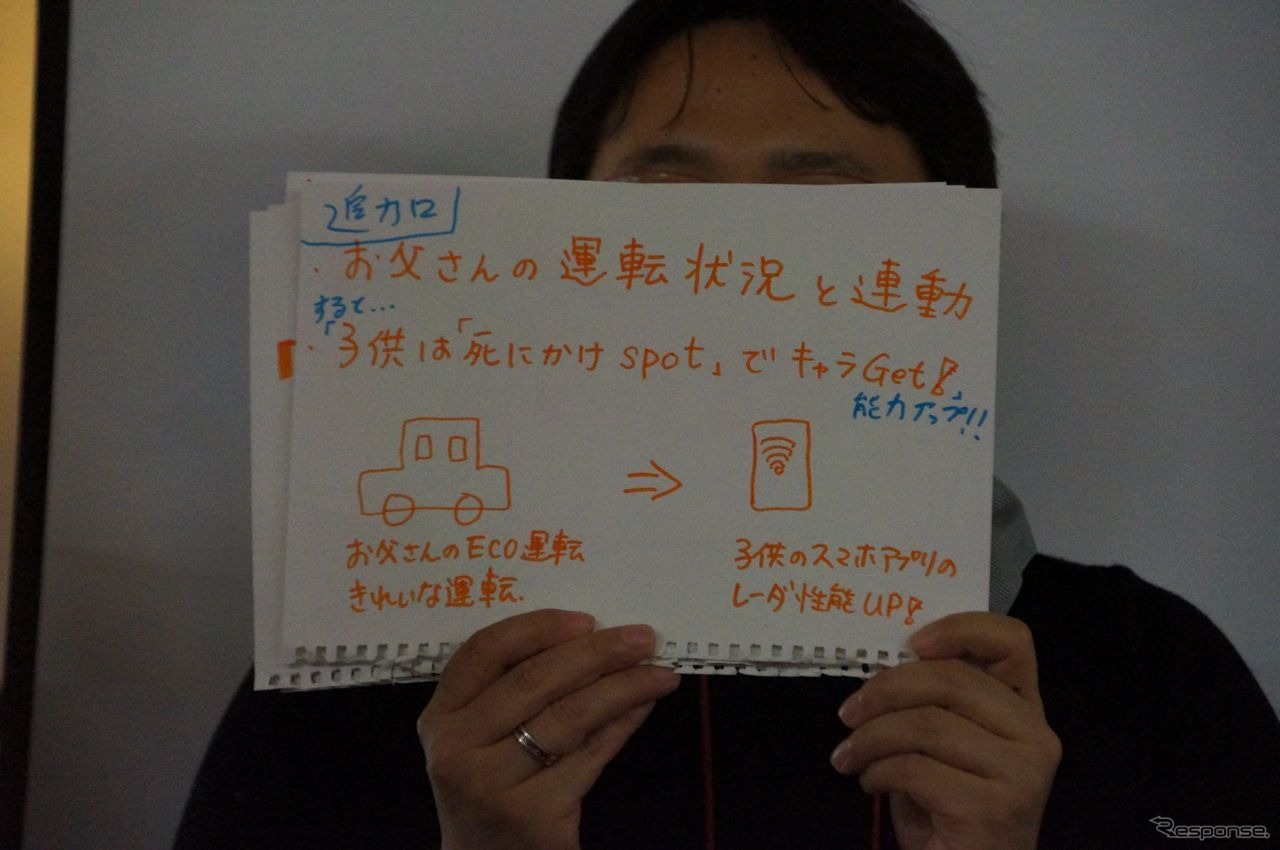 追加
・お父さんの運転状況と連動
すると…
・「子供は「死にかけspot」でキャラGet!」
能力アップ!!
⇒
お父さんのECO運転
きれいな運転.
子供のスマホアプリの
レーダ性能UP!
Response.